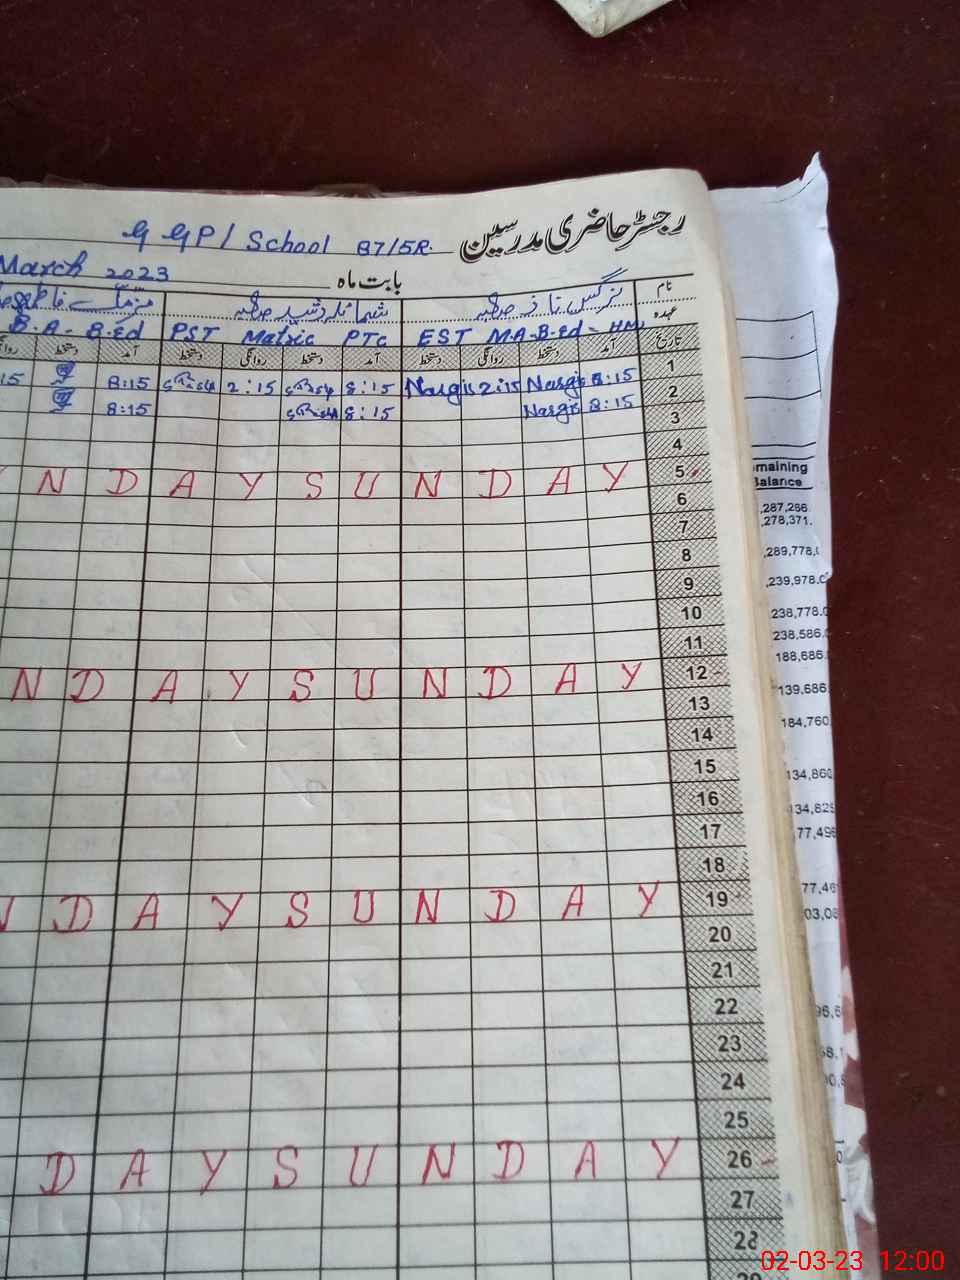 رجسٹر حاضری مدرسین
G GP/ School 87/5R.
بابت ماہ March 2023
نام نرگس ناز صاحبہ
عہدہ EST M.A-B.ed- HM PST Matric PTC B.A- B.Ed
تاریخ آمد دستخط روانگی دستخط آمد دستخط روانگی دستخط آمد دستخط
1 8:15 Nargis 2:15 Nargis 8:15 2:15 8:15 15
2 8:15 Nargis 8:15 8:15
3
4
N D A Y S U N D A Y 5
6
7
8
9
10
11
N D A Y S U N D A Y 12
13
14
15
16
17
18
D A Y S U N D A Y 19
20
21
22
23
24
25
D A Y S U N D A Y 26
27
28
maining
Balance
,287,286.
,278,371.
,289,778.
,239,978.0
238,778.0
238,586.
188,686.
139,686
184,760
134,860
134,825
77,496
77,46
03,08
02-03-23 12:00